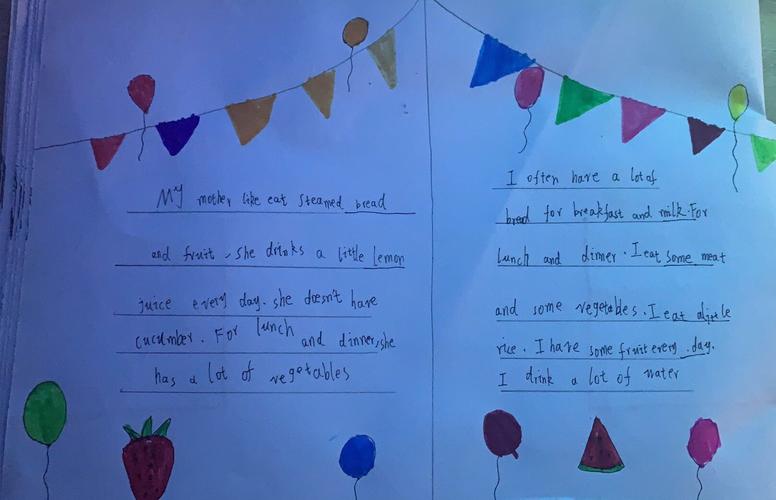 My mother like eat steamed bread
and fruit. She drinks a little lemon
juice every day. she doesn't have
cucumber. For lunch and dinner, she
has a lot of vegetables
I often have a lot of
bread for breakfast and milk. For
lunch and dinner. I eat some meat
and some vegetables. I eat alittle
rice. I have some fruit every day.
I drink a lot of water